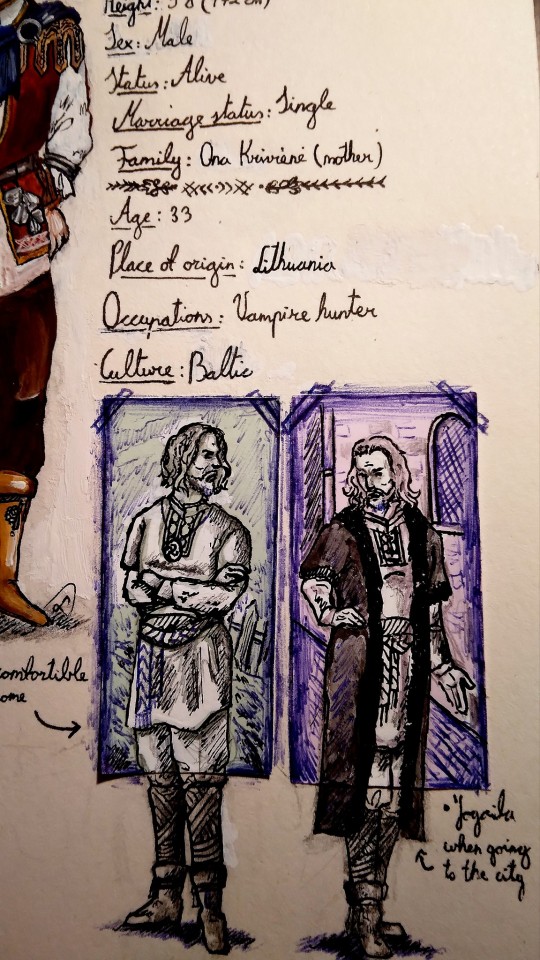 Height: 5'8 (172 cm)
Sex: Male
Status: Alive
Marriage status: Single
Family: Ona Krivienė (mother)
Age: 33
Place of origin: Lithuania
Occupations: Vampire hunter
Culture: Baltic
comfortible
ome
• Jogaila
when going
to the city